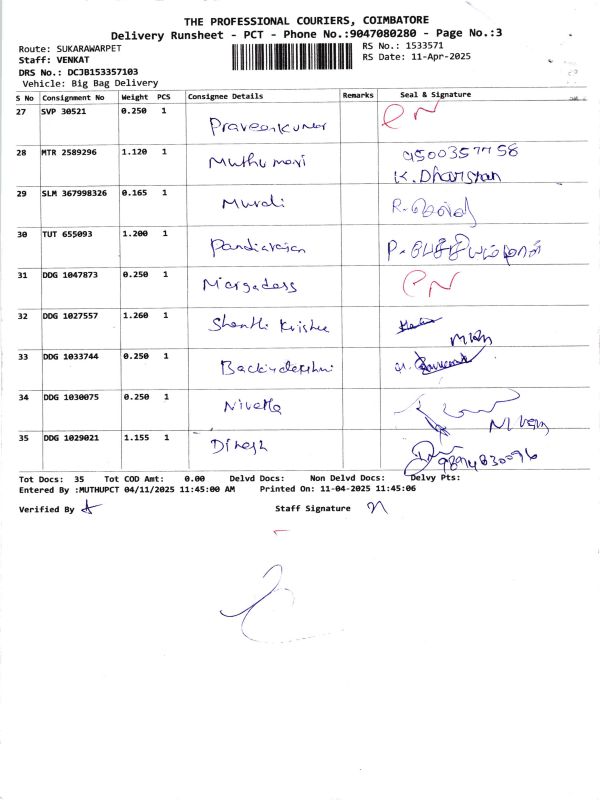 THE PROFESSIONAL COURIERS, COIMBATORE
Delivery Runsheet - PCT - Phone No.:9047080280 - Page No.:3
Route: SUKARAWARPET RS No.: 1533571
Staff: VENKAT RS Date: 11-Apr-2025
DRS No.: DCJB153357103
Vehicle: Big Bag Delivery
S No Consignment No Weight PCS Consignee Details Remarks Seal & Signature
27 SVP 30521 0.250 1 Praveenkumar
28 MTR 2589296 1.120 1 Muthu mari 9500357758
K. Dharsyan
29 SLM 367998326 0.165 1 Murali R.
30 TUT 655093 1.200 1 Pandiarajan P.
31 DDG 1047873 0.250 1
32 DDG 1027557 1.260 1 Shanthi Krishna
33 DDG 1033744 0.250 1
34 DDG 1030075 0.250 1 Nivetha
35 DDG 1029021 1.155 1 Dinesh 9894830096
Tot Docs: 35 Tot COD Amt: 0.00 Delvd Docs: Non Delvd Docs: Delvy Pts:
Entered By :MUTHUPCT 04/11/2025 11:45:00 AM Printed On: 11-04-2025 11:45:06
Verified By Staff Signature